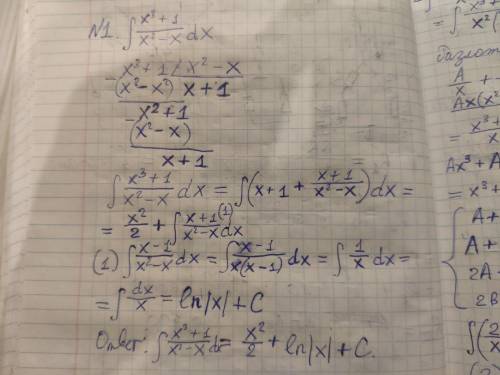 №1. ∫ x³+1 / x²-x dx
x³+1 | x²-x
(x³-x²) x+1
x²+1
(x²-x)
x+1
∫ x³+1 / x²-x dx = ∫(x+1 + x+1 / x²-x)dx =
= x²/2 + ∫ x+1 / x²-x dx (1)
(1) ∫ x-1 / x²-x dx = ∫ x-1 / x(x-1) dx = ∫ 1/x dx =
= ∫ dx/x = ln|x| + C
Ответ: ∫ x³+1 / x²-x dx = x²/2 + ln|x| + C.
= ∫ x³+ / x²(
Разлож
A/x +
Ax(x²
= x³+ / x
Ax³+A
= x³+
A+
A+
2A-
2B
∫(2/x